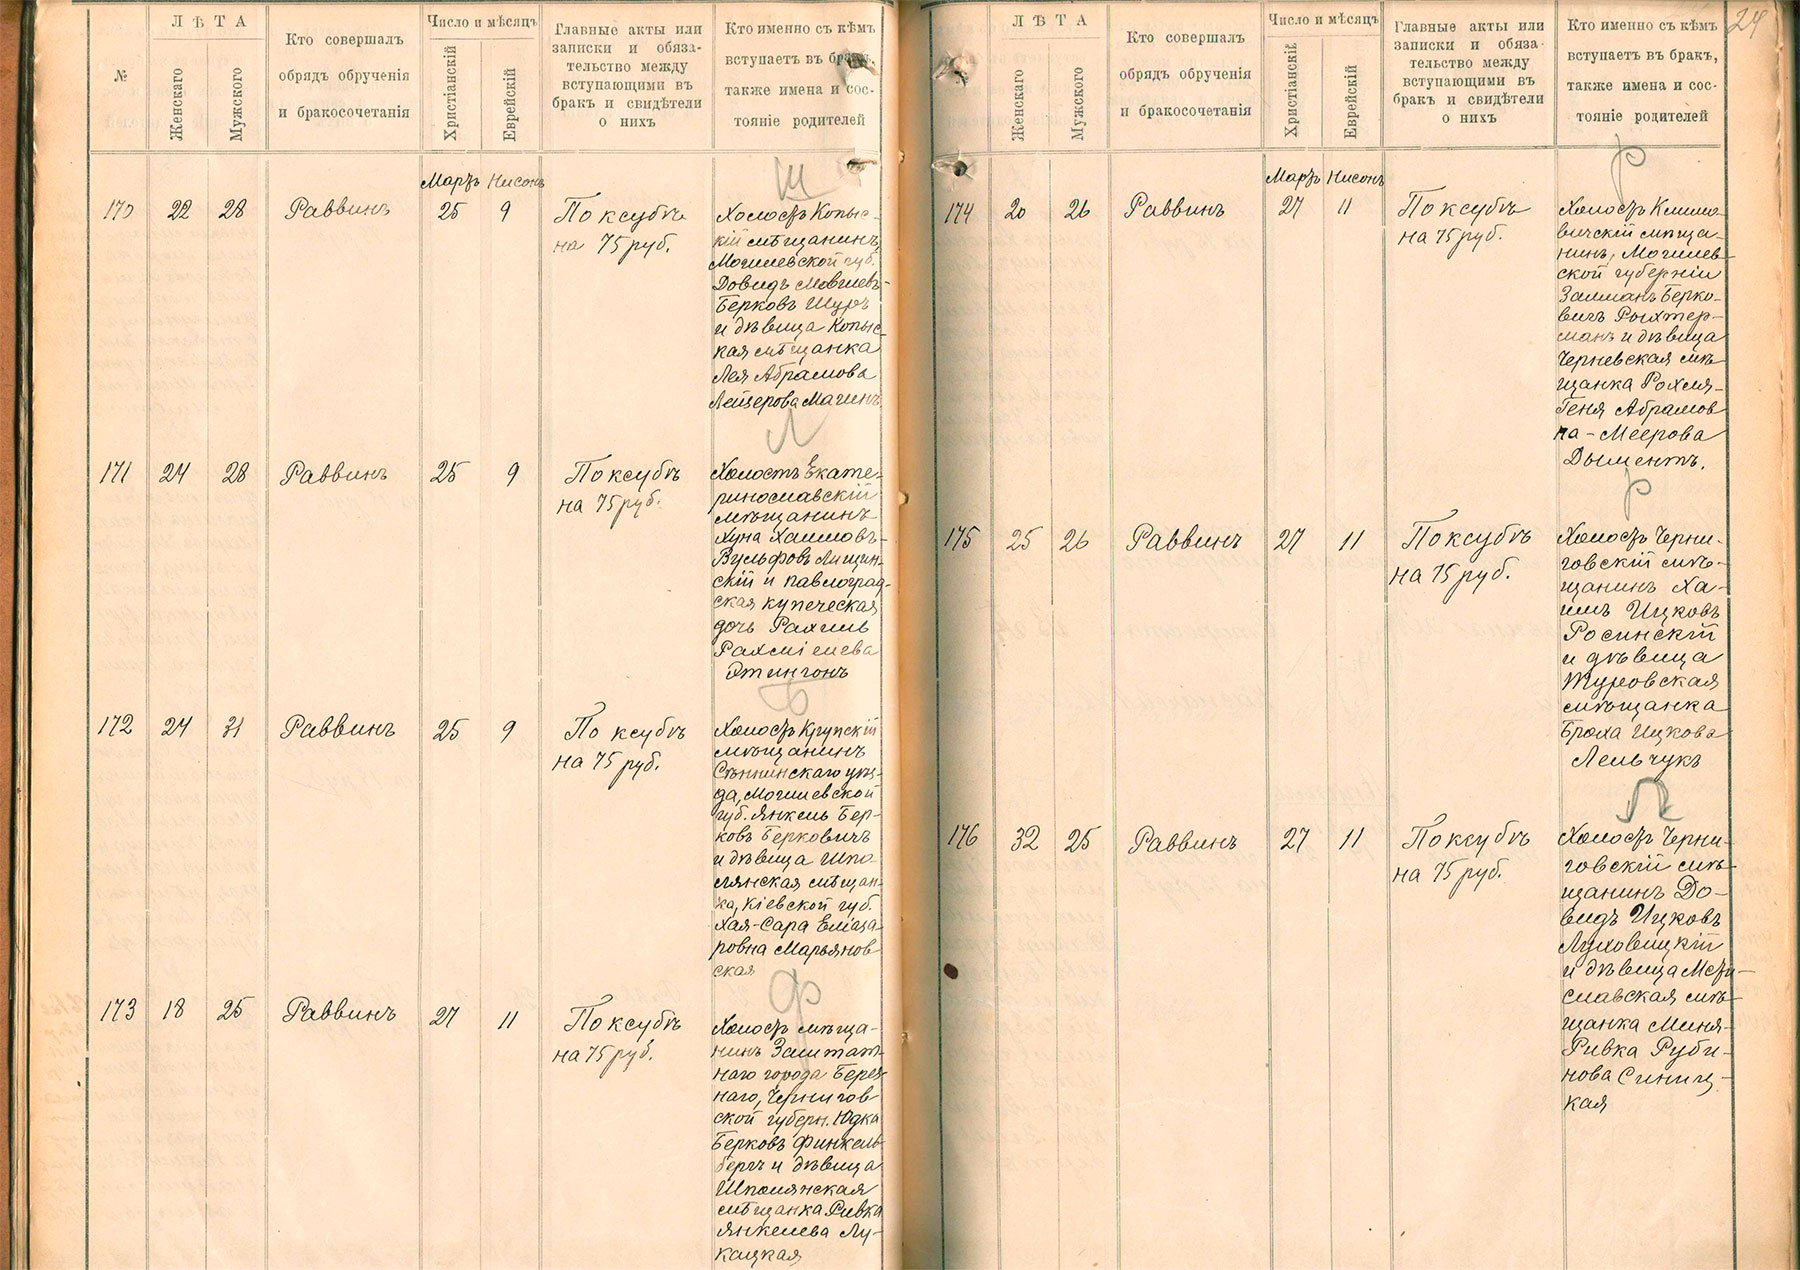 ЛѢТА
Число и мѣсяцъ
№
Женскаго
Мужского
Кто совершалъ
обрядъ обрученія
и бракосочетанія
Христіанскій
Еврейскій
Главные акты или
записки и обяза-
тельство между
вступающими въ
бракъ и свидѣтели
о нихъ
Кто именно съ кѣмъ
вступаетъ въ бракъ,
также имена и сос-
тояніе родителей
Мартъ Нисонъ
Ш
170 22 28 Раввинъ 25 9 По ксубѣ
на 75 руб.
Холостъ Копыс-
скій мѣщанинъ,
Могилевской губ.
Довидъ Мовшевъ-
Берковъ Шуръ
и дѣвица Копыс-
ская мѣщанка
Лея Абрамова
Лейзерова Магинъ
Л
171 24 28 Раввинъ 25 9 По ксубѣ
на 75 руб.
Холостъ Екате-
ринославскій
мѣщанинъ
Хуна Хаимовъ-
Вульфовъ Лищин-
скій и павлоград-
ская купеческая
дочь Рахиль
Рахміелева
Этингонъ
Б
172 24 31 Раввинъ 25 9 По ксубѣ
на 75 руб.
Холостъ Крупскій
мѣщанинъ
Сѣннинскаго уѣз-
да, Могилевской
губ. Янкель Бер-
ковъ Берковичъ
и дѣвица Шпо-
лянская мѣщан-
ка, Кіевской губ.
Хая-Сара Еліаза
ровна Марьянов-
ская
Ф
173 18 25 Раввинъ 27 11 По ксубѣ
на 75 руб.
Холостъ мѣща-
нинъ Заштат-
наго города Берез-
наго, Чернигов
ской губерн. Юдка
Берковъ Финкель-
бергъ и дѣвица
Шполянская
мѣщанка Ривка
Янкелева Лу-
кацкая
24
ЛѢТА
Число и мѣсяцъ
Женскаго
Мужского
Кто совершалъ
обрядъ обрученія
и бракосочетанія
Христіанскій
Еврейскій
Главные акты или
записки и обяза-
тельство между
вступающими въ
бракъ и свидѣтели
о нихъ
Кто именно съ кѣмъ
вступаетъ въ бракъ,
также имена и сос-
тояніе родителей
Мартъ Нисонъ
Р
174 20 26 Раввинъ 27 11 По ксубѣ
на 75 руб.
Холостъ Климо-
вичскій мѣща-
нинъ, Могилев-
ской губерніи
Залманъ Берко-
вичъ Рыхтер-
манъ и дѣвица
Черневская мѣ-
щанка Рохля-
Геня Абрамов
на-Меерова
Дыментъ.
Р
175 25 26 Раввинъ 27 11 По ксубѣ
на 75 руб.
Холостъ Черни-
говскій мѣ-
щанинъ Ха-
имъ Ицковъ
Росинскій
и дѣвица
Журовская
мѣщанка
Броха Ицкова
Лельчукъ
Л
176 32 25 Раввинъ 27 11 По ксубѣ
на 75 руб.
Холостъ Черни-
говскій мѣ-
щанинъ До-
видъ Ицковъ
Луховицкій
и дѣвица Мсти-
славская мѣ-
щанка Миня-
Ривка Руби-
нова Синиц-
кая